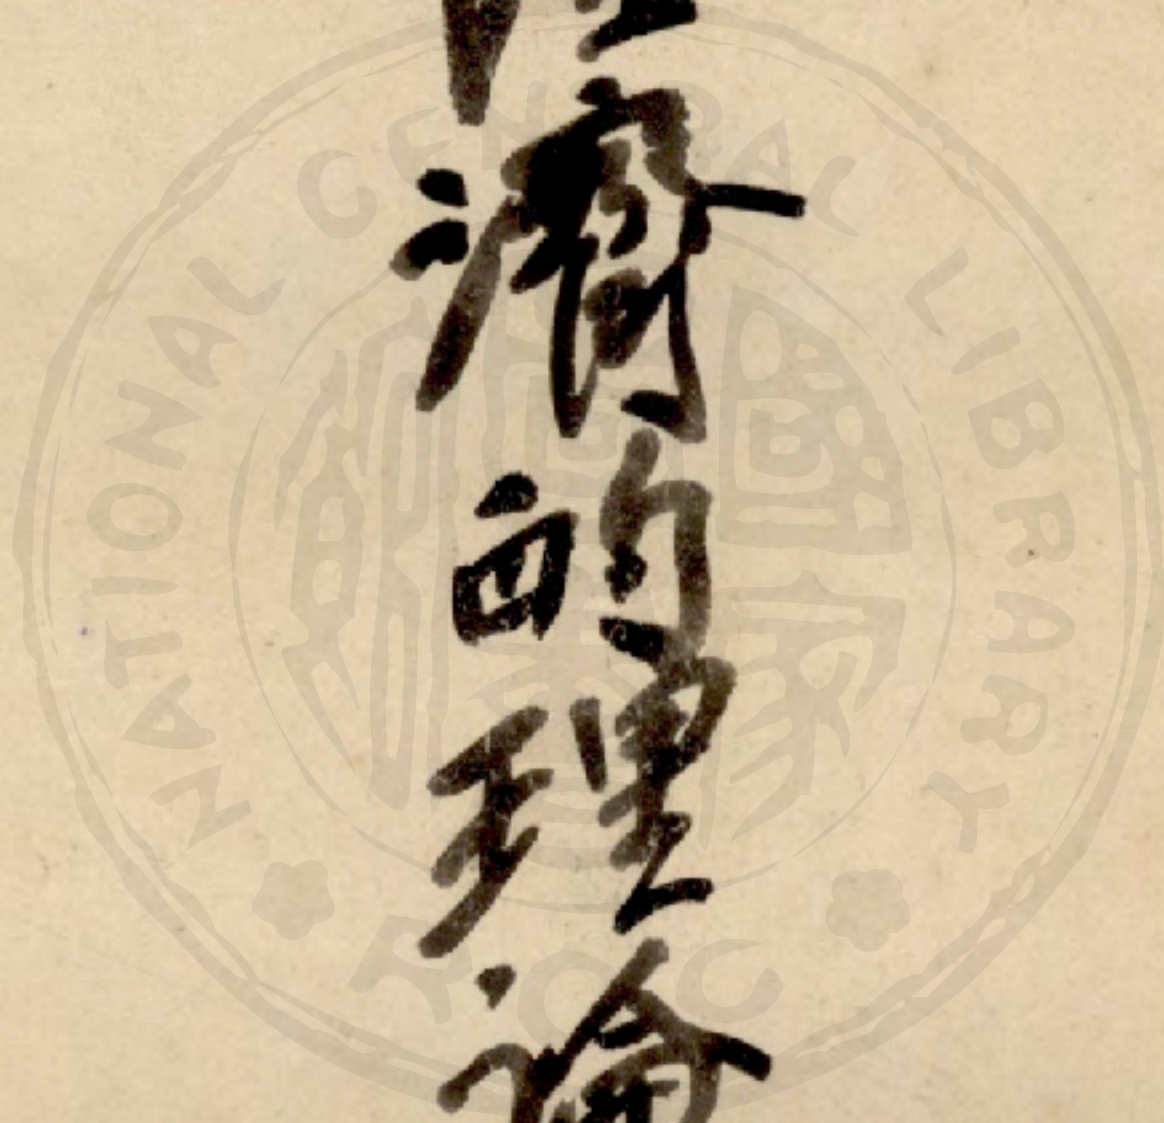 濟的理論
NATIONAL CENTRAL LIBRARY
ROC